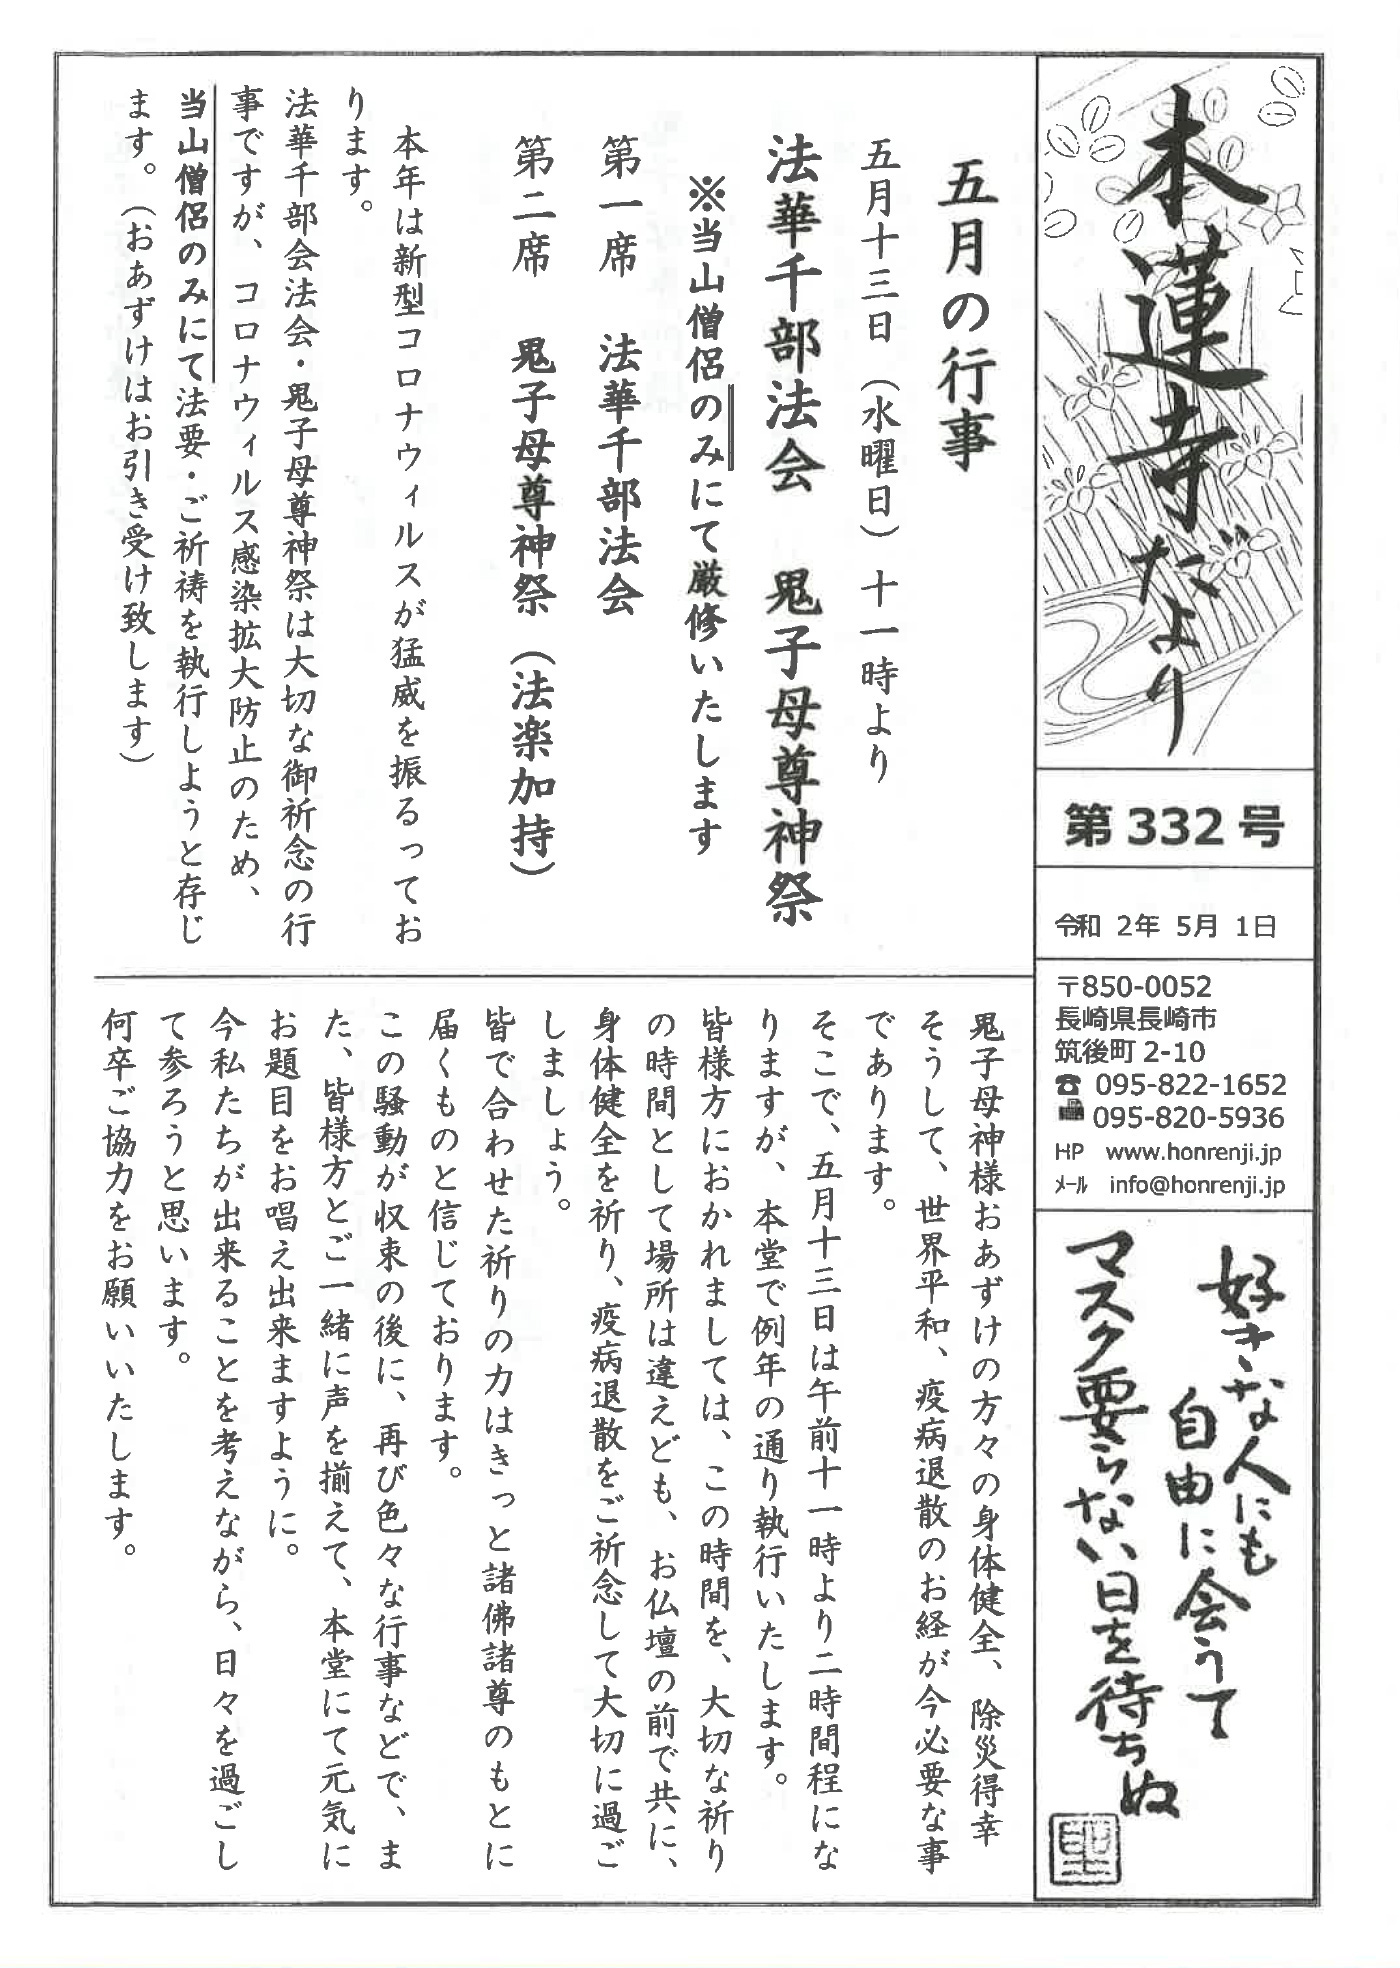 本蓮寺だより
第332号
令和 2年 5月 1日
〒850-0052
長崎県長崎市
筑後町 2-10
☎ 095-822-1652
095-820-5936
HP www.honrenji.jp
ﾒｰﾙ info@honrenji.jp
好きな人にも
自由に会うて
マスク要らない日を待ちぬ
五月の行事
五月十三日（水曜日）十一時より
法華千部法会 鬼子母尊神祭
※当山僧侶のみにて厳修いたします
第一席 法華千部法会
第二席 鬼子母尊神祭（法楽加持）
本年は新型コロナウィルスが猛威を振るってお
ります。
法華千部会法会・鬼子母尊神祭は大切な御祈念の行
事ですが、コロナウィルス感染拡大防止のため、
当山僧侶のみにて法要・ご祈祷を執行しようと存じ
ます。（おあずけはお引き受け致します）
鬼子母神様おあずけの方々の身体健全、除災得幸
そうして、世界平和、疫病退散のお経が今必要な事
であります。
そこで、五月十三日は午前十一時より二時間程にな
りますが、本堂で例年の通り執行いたします。
皆様方におかれましては、この時間を、大切な祈り
の時間として場所は違えども、お仏壇の前で共に、
身体健全を祈り、疫病退散をご祈念して大切に過ご
しましょう。
皆で合わせた祈りの力はきっと諸佛諸尊のもとに
届くものと信じております。
この騒動が収束の後に、再び色々な行事などで、ま
た、皆様方とご一緒に声を揃えて、本堂にて元気に
お題目をお唱え出来ますように。
今私たちが出来ることを考えながら、日々を過ごし
て参ろうと思います。
何卒ご協力をお願いいたします。